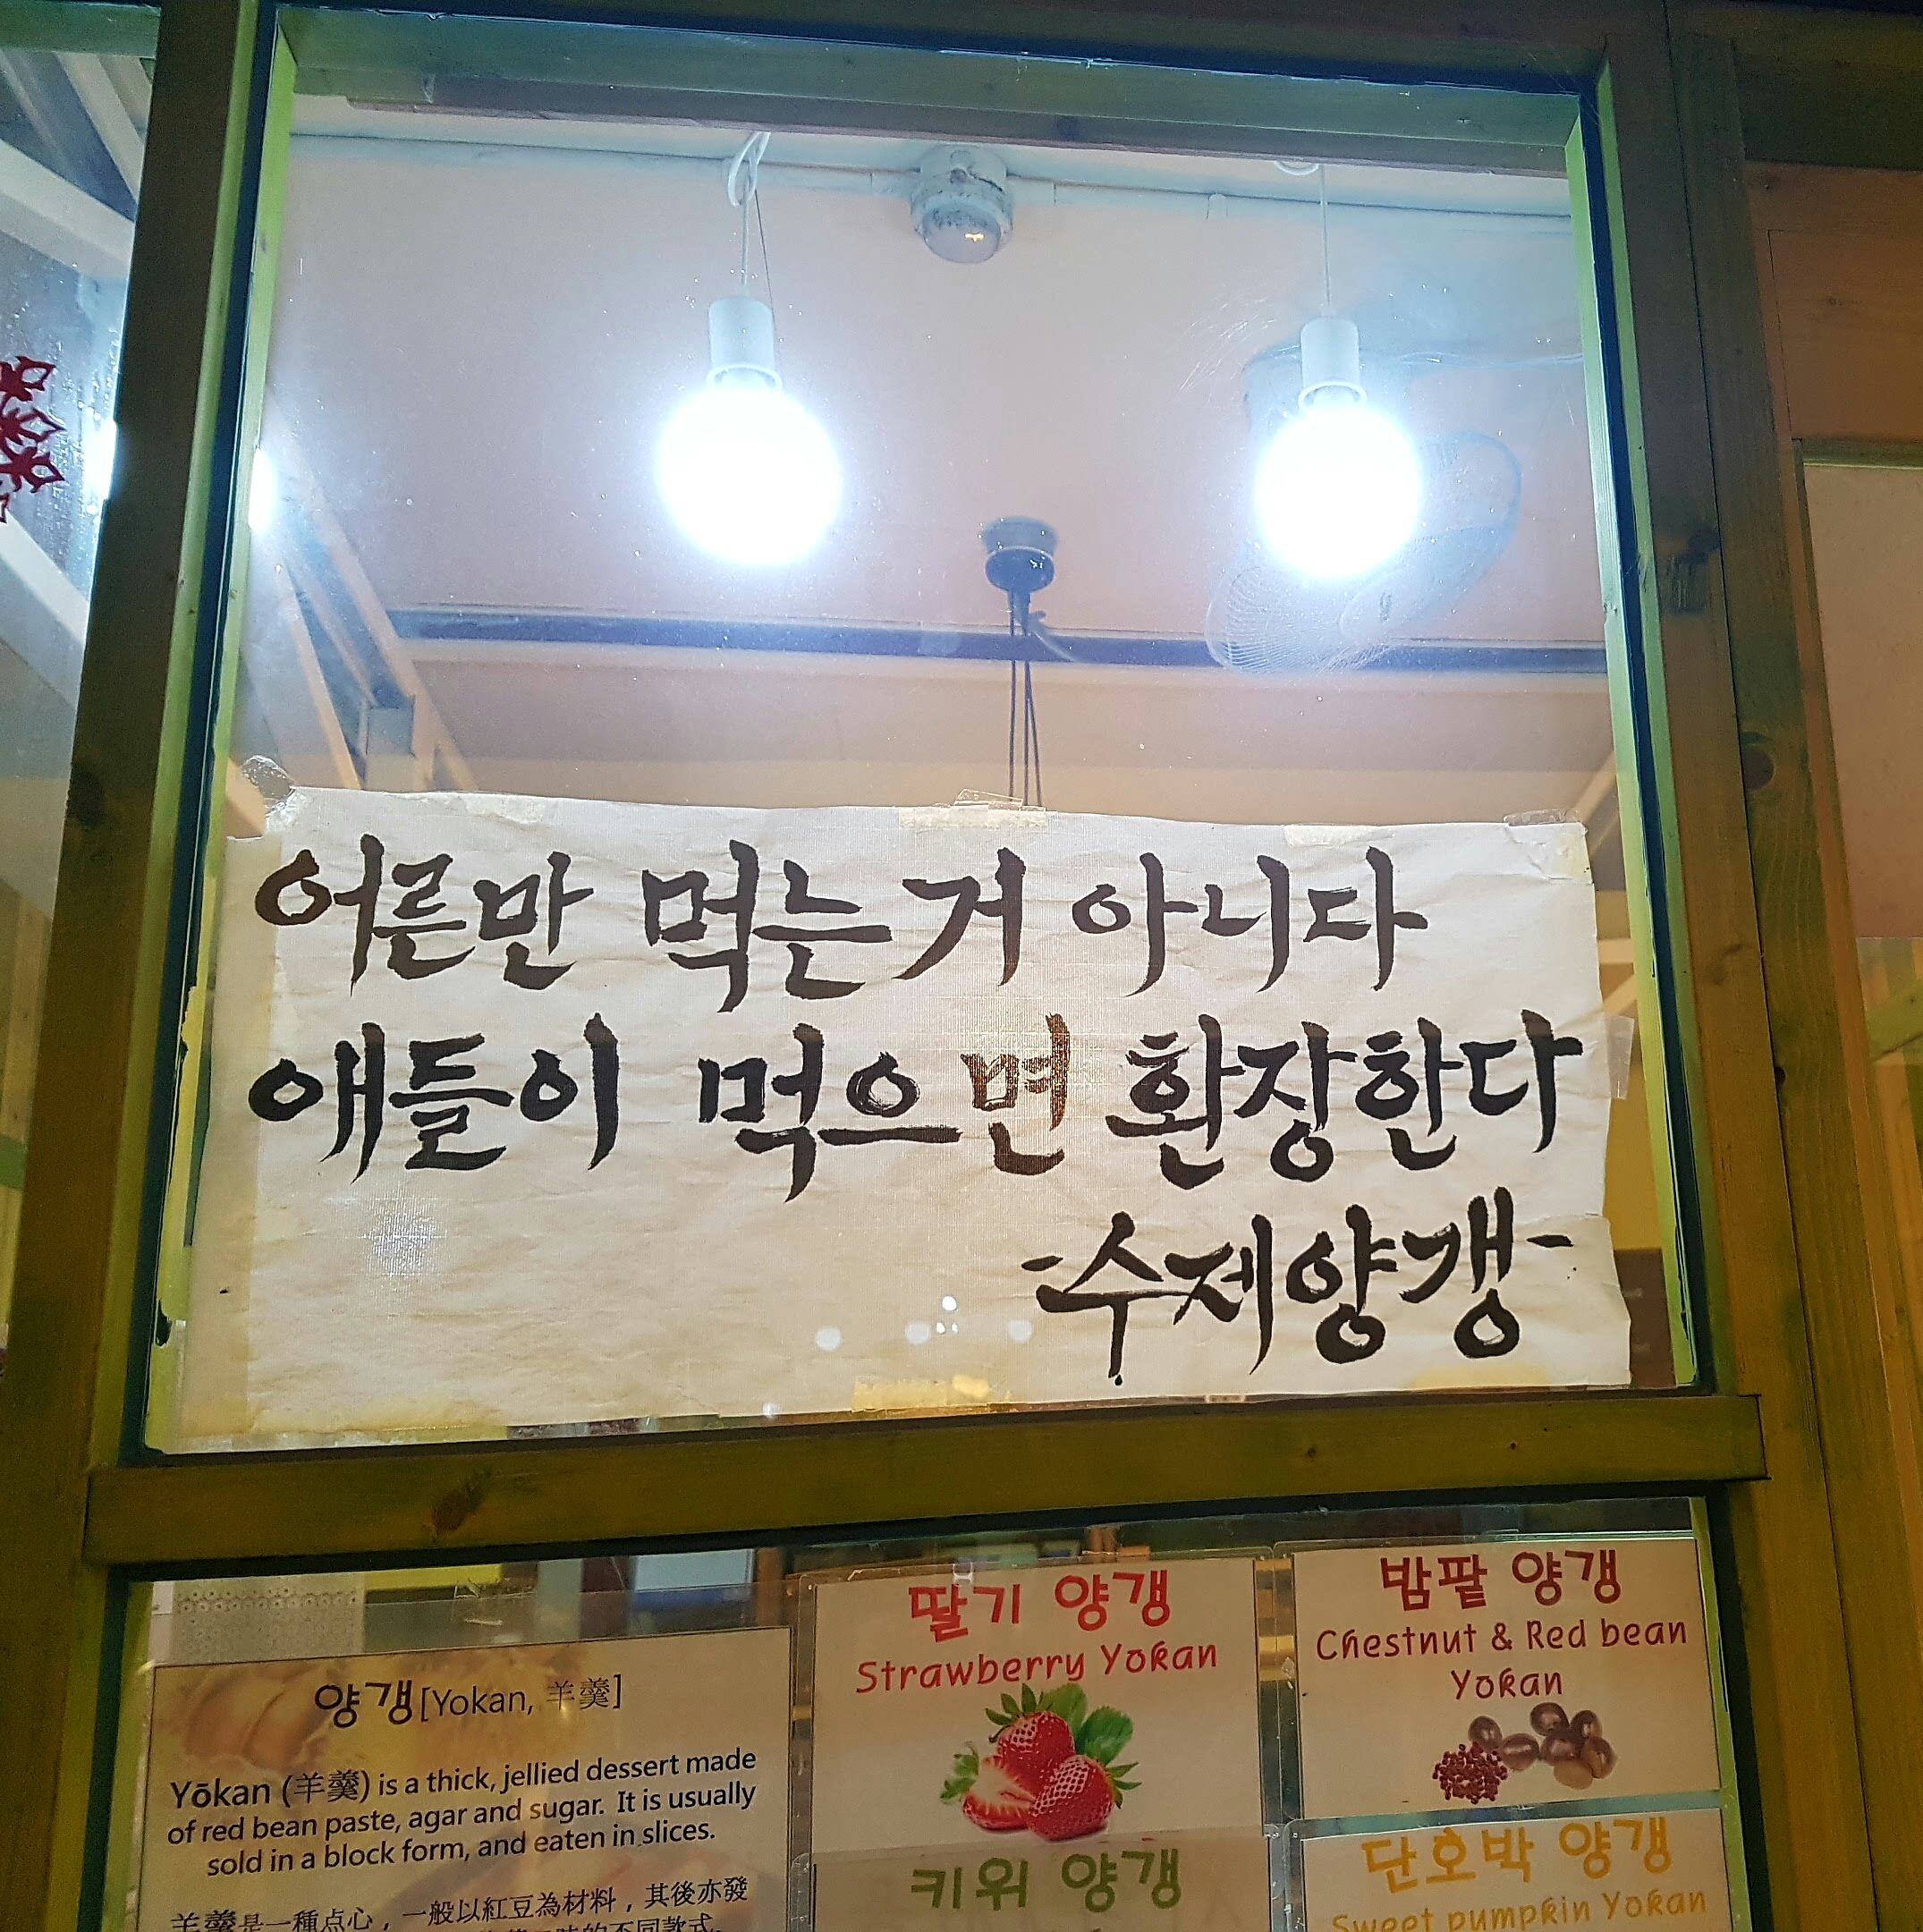 어른만 먹는거 아니다
애들이 먹으면 환장한다
-수제양갱-
양갱[Yokan, 羊羹]
Yōkan (羊羹) is a thick, jellied dessert made
of red bean paste, agar and sugar. It is usually
sold in a block form, and eaten in slices.
羊羹是一種点心，一般以紅豆為材料，其後亦發
的不同款式。
딸기 양갱
Strawberry Yokan
밤팥 양갱
Chestnut & Red bean
Yokan
키위 양갱
단호박 양갱
Sweet pumpkin Yokan